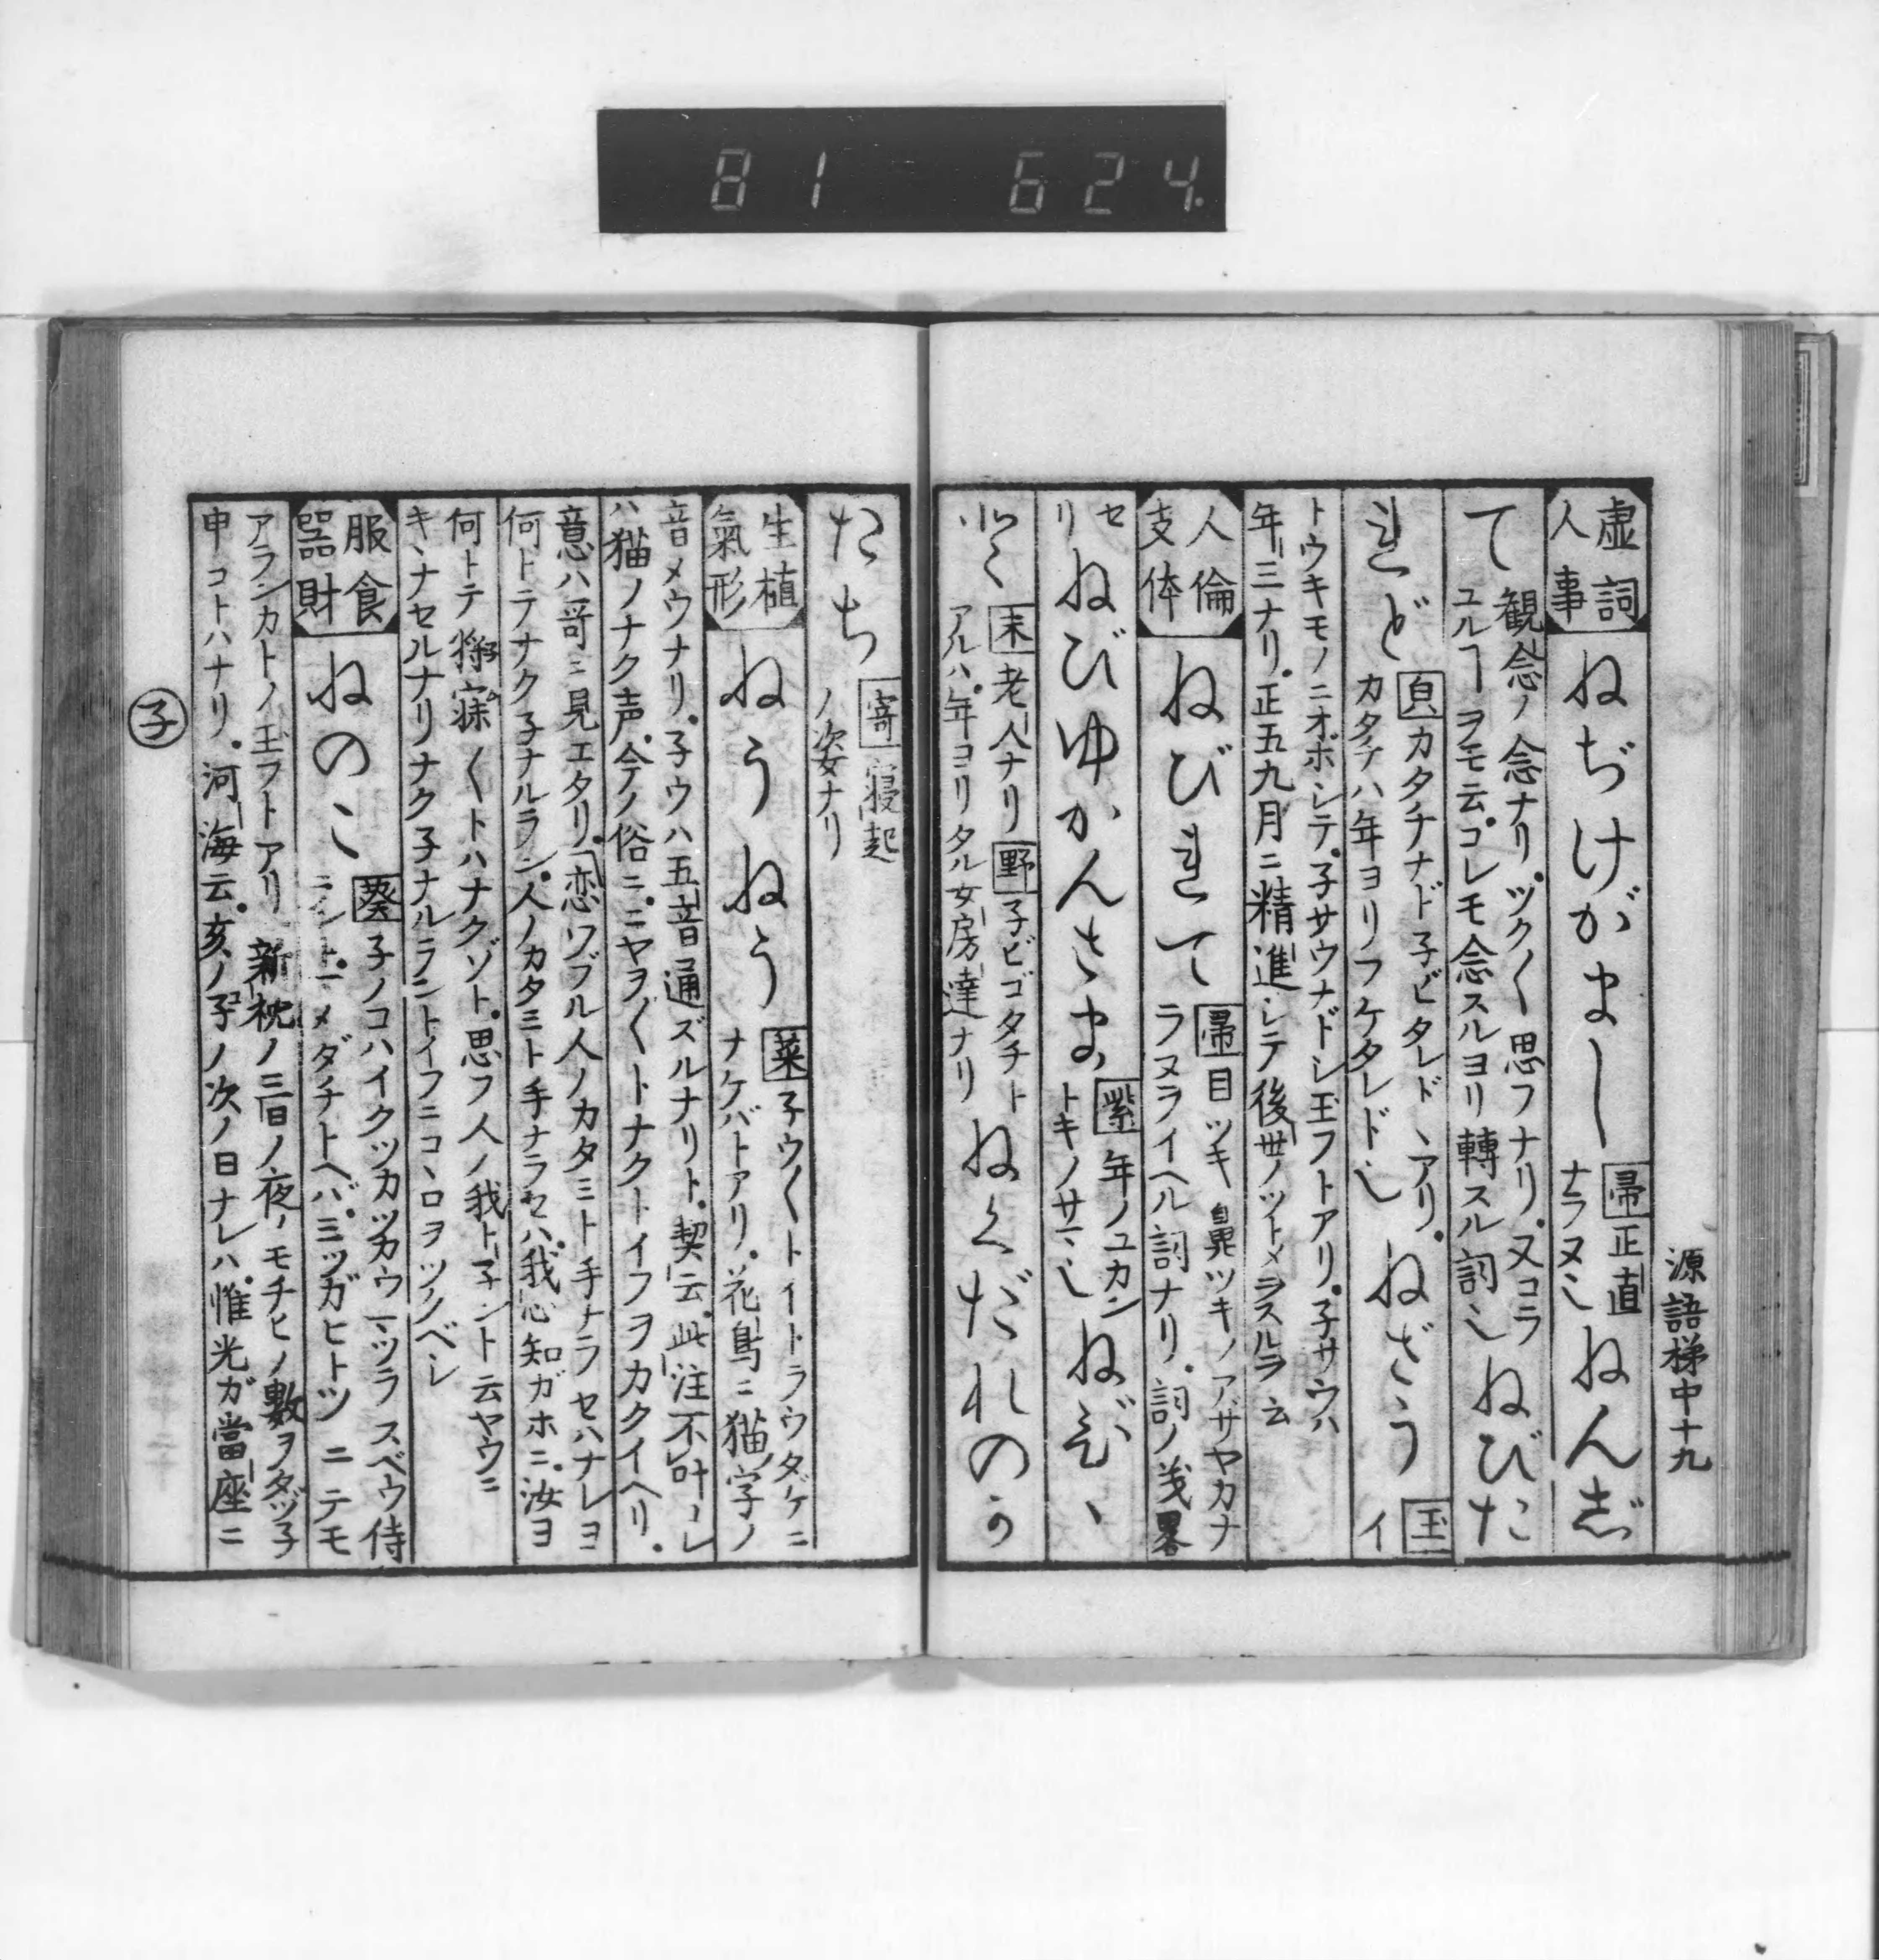 81 624.
源語梯中十九
虚詞
人事
ねぢけがまし
帚正直
ナラヌ也
ねんじ
て
観念ノ念ナリ。ツク〱思フナリ。又コラ
ユルヿヲモ云。コレモ念スルヨリ轉スル詞也
ねびた
れど
カタチナド子ビタレドヽアリ。
カタチハ年ヨリフケタレド也
ねざう
玉
イ
トウキモノニオボシテ。子サウナドシ玉フトアリ。子サウハ
年三ナリ。正五九月ニ精進シテ後世ノツトメヲスルヲ云
人倫
支体
ねびれて
帚目ツキ鼻ツキノアザヤカナ
ラヌヲイヘル詞ナリ。詞ノ義畧
セ
リ
ねびゆかんさま
紫年ノユカン
トキノサマ也
ねび
人〱
末老人ナリ野子ビゴタチト
アルハ。年ヨリタル女房達ナリ
ねくだれのか
たち
寄寝起
ノ姿ナリ
生植
氣形
ねうねう
菜子ウ〱トイトラウタゲニ
ナケバトアリ。花鳥ニ猫ノ字ノ
音メウナリ。子ウハ五音通ズルナリト。契云。此注不叶レ
ハ猫ノナク声。今ノ俗ニ。ニヤヲ〱トナクトイフヲカクイヘリ。
意ハ哥ニ見エタリ。「恋ワブル人ノカタミト手ナラセハナレヨ
何トテナク子ナルラン。人ノカタミト手ナラセハ。我心知ガホニ。汝ヨ
何トテ将寐〱トハナクゾト。思フ人ノ我ト子ント云ヤウニ
キヽナセルナリナク子ナルラントイフニコヽロヲツクベシ
服食
器財
ねのこ
葵子ノコハイクツカツカウマツラスベウ侍
メダチトヘバ。ミツガヒトツニテモ
アランカトノ玉フトアリ新枕ノ三日ノ夜ノモチヒノ數ヲタヅ子
申コトハナリ。河海云。亥ノ子ノ次ノ日ナレハ。惟光ガ當座ニ
子